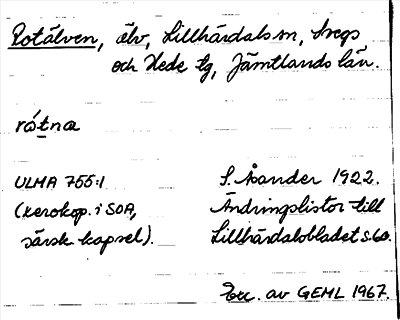 Rotälven, älv, Lillhärdals sn, Svegs
och Hede tg, Jämtlands län.
rótna
ULMA 755:1
S. Åsander 1922.
(xerokop. i SOA,
Ändringslistor till
särsk. kapsel).
Lillhärdalsbladet s. 60.
Exc. av GEML 1967.